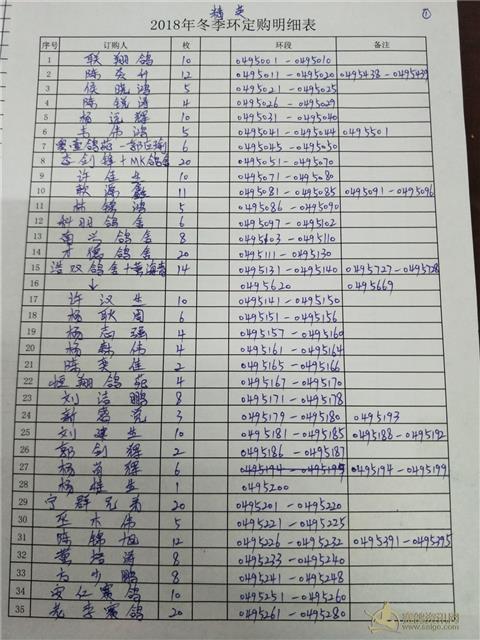 精英
①
2018年冬季环定购明细表
序号 订购人 枚 环段 备注
1 联翔鸽 10 0495001-0495010
2 陈奕升 12 0495011-0495020 0495438-0495439
3 侯晓鸿 5 0495021-0495025
4 陈锐涛 4 0495026-0495029
5 杨远辉 10 0495031-0495040
6 韦伟鸿 5 0495041-0495044 0495501
7 6 0495045-0495050
8 李剑锋+MK鸽舍 20 0495051-0495070
9 许佳生 10 0495071-0495080
10 11 0495081-0495085 0495091-0495096
11 林锦鸿 5 0495086-0495090
12 科羽鸽舍 6 0495097-0495102
13 南兴鸽舍 8 0495103-0495110
14 才德鸽舍 20 0495111-0495130
15 浩双鸽舍+黄海青 14 0495131-0495140 0495727-0495728
16 ↓ 0495620 0495669
17 许汉生 10 0495141-0495150
18 杨耿周 6 0495151-0495156
19 杨志强 4 0495157-0495160
20 杨森伟 4 0495161-0495164
21 陈奕佳 2 0495165-0495166
22 恒翔鸽苑 4 0495167-0495170
23 刘洁鹏 8 0495171-0495178
24 3 0495179-0495180 0495193
25 刘建生 10 0495181-0495185 0495188-0495192
26 郭剑辉 2 0495186-0495187
27 杨尚辉 6 0495194-0495199 0495194-0495199
28 杨桂生 1 0495200
29 宁群兄弟 20 0495201-0495220
30 巫木伟 5 0495221-0495225
31 陈锦旭 12 0495226-0495232 0495391-0495395
32 黄培涛 8 0495233-0495240
33 方少鹏 8 0495241-0495248
34 安仁赛鸽 10 0495251-0495260
35 老李赛鸽 20 0495261-0495280
赛鸽资讯网
www.saige.com